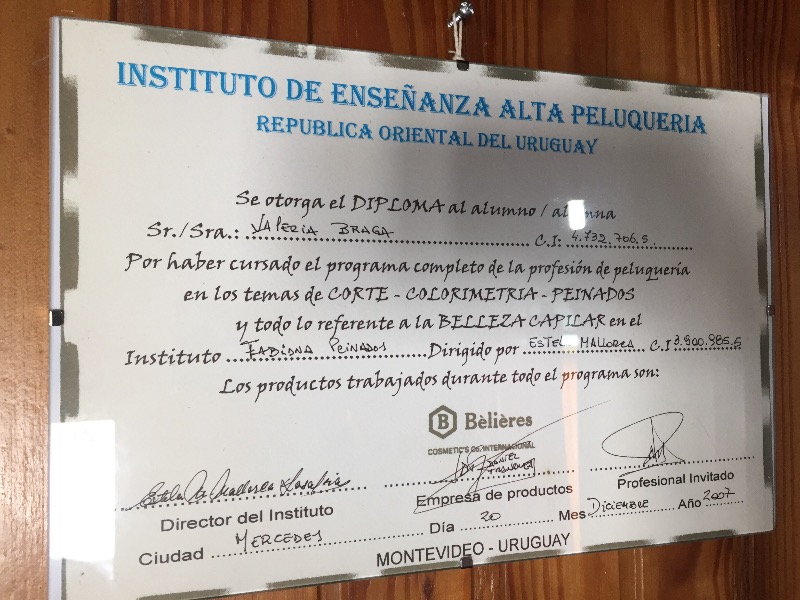 INSTITUTO DE ENSEÑANZA ALTA PELUQUERIA
REPUBLICA ORIENTAL DEL URUGUAY
Se otorga el DIPLOMA al alumno / alumna
Sr./Sra.: VALERIA BRAGA C.I: 4.732.706.5
Por haber cursado el programa completo de la profesión de peluquería
en los temas de CORTE - COLORIMETRIA - PEINADOS
y todo lo referente a la BELLEZA CAPILAR en el
Instituto FABIONA PEINADOS Dirigido por ESTELA MALLORCA C.I 3.900.985.5
Los productos trabajados durante todo el programa son:
B Bèlières
COSMETIC'S Co. INTERNACIONAL
DANIEL
Director del Instituto Empresa de productos Profesional Invitado
Ciudad MERCEDES Día 20 Mes DICIEMBRE Año 2007
MONTEVIDEO - URUGUAY